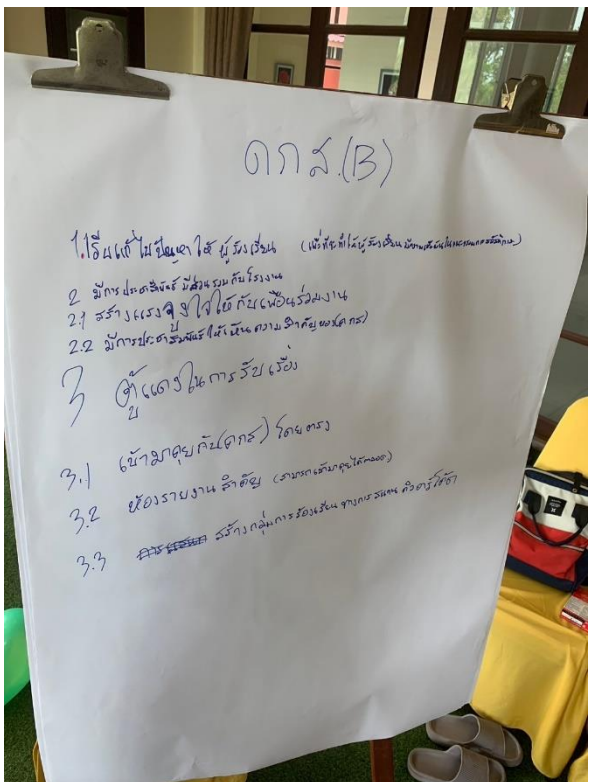 ดกส.(B)
1.รีบแก้ไขปัญหาให้ผู้ร้องเรียน (เพื่อที่จะทำให้ผู้ร้องเรียน
2 มีการประชาสัมพันธ์ มีส่วนรวมกับโรงงาน
2.1 สร้างแรงจูงใจให้กับเพื่อนร่วมงาน
2.2 มีการประชาสัมพันธ์ให้เห็นความสำคัญของ(คกส)
3 ตู้แดงในการรับเรื่อง
3.1 เข้ามาคุยกับ(คกส) โดยตรง
3.2 ห้องรายงานสำคัญ (สามารถเข้ามาคุยได้ตลอด)
3.3 สร้างกลุ่มการร้องเรียน ทางการสแกน คิวอาร์โค้ด